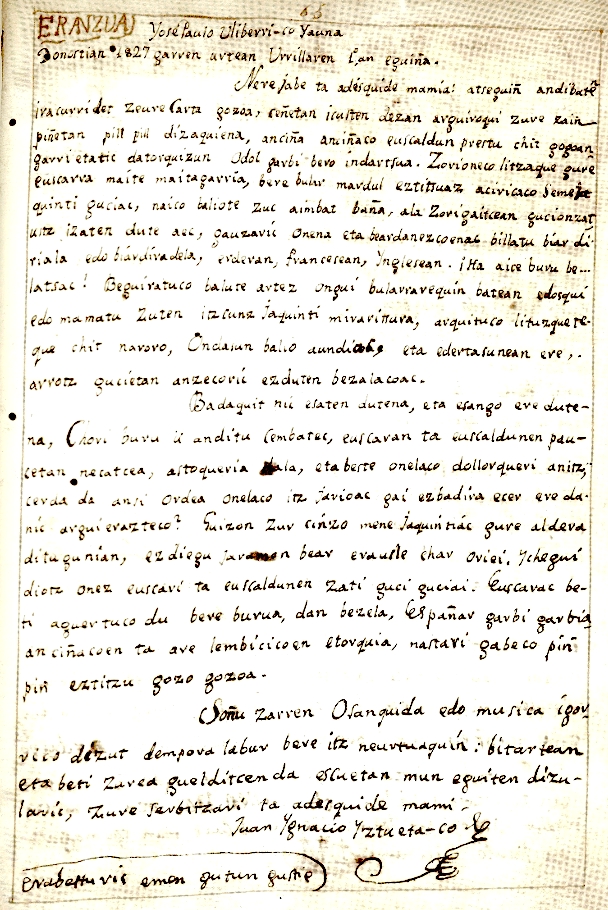 65
ERANZUA} Yosé Paulo Uliberri-co Yauna
Donostian 1827 garren urtean Urrillaren Lan eguiña.
Nere jabe ta adesquide mamia: atseguiñ andibateñ
iracurri det zeure Carta gozoa, ceñetan icusten dezan arguiroqui zure zaiñ
piñetan pill pill dizaquiena, anciña anciñaco euscaldun prestu chit gogoan
garrietatic datorquizun Odol garbi bero indartsua. Zorioneco litzaque gure
euscarra maite maitagarria, bere bular mardul eztitsuaz aciricaco Semeja
quinti guciac, naico baliote zuc aimbat baña, ala Zorigaitcean gucionzat
ustz izaten dute aec, gauzaric onena eta beardanezcoenac billatu biar di
riala edo biardiradela, erderan, francesean, Ynglesean. ¡Ha aice buru be...
latsac! Beguiratuco balute artez ongui bularrarequin batean edosqui
edo mamatu zuten itzcunz Jaquinti miraritsura, arquituco lituzquete-
que chit naroro, Ondasun balio aundicac, eta edertasunean ere,.
arrotz gucietan anzecoric ezduten bezalacoac.
Badaquit nic esaten dutena, eta esango ere dute-
na, Chori buru ii anditu cembatec, euscaran ta euscaldunen pau-
cetan necatcea, astoqueria dala, eta beste onelaco dollorqueri anitz,
cerda da ansi Ordea onelaco itz jarioac gai ezbadira ecer ere da-
nic arguierazteco? Guizon zur cinzo mene Jaquintiac gure aldera
ditugunian, ezdiegu jaramon bear erausle char oriei. Ychegui
diotz onez euscari ta euscaldunen zati guci guciai. Euscarac be-
ti aguertuco du bere burua, dan bezela, Españar garbi garbia
anciñacoen ta are lembicicoen etorquia, nastari gabeco piñ
piñ eztitzu gozo gozoa.
Soñu zarren Osanquida edo musica igor
rico dizut dempora labur bere itz neurtuaquin: bitartean
eta beti zurea guelditcenda escuetan mun eguiten dizu-
laric, zure serbitzari ta adesquide mami.
Juan Ygnacio Yztueta-co
erabatturic emen gutun gustie)